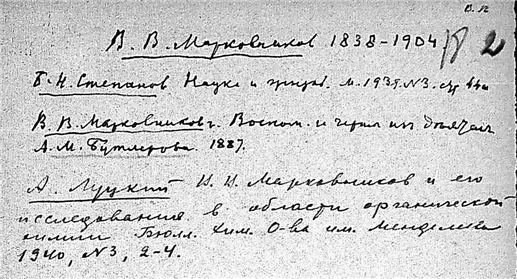 В. В. Марковников 1838-1904 2
Б. Н. Степанов Наука и жизнь. М. 1939. N3. стр
В. В. Марковников. Воспом. и черты из деятельн.
А. М. Бутлерова. 1887.
А. Луцкий Н. Н. Марковников и его
исследования в области органической
химии Бюлл. Хим. О-ва им. Менделеева
1940, N3, 2-4.